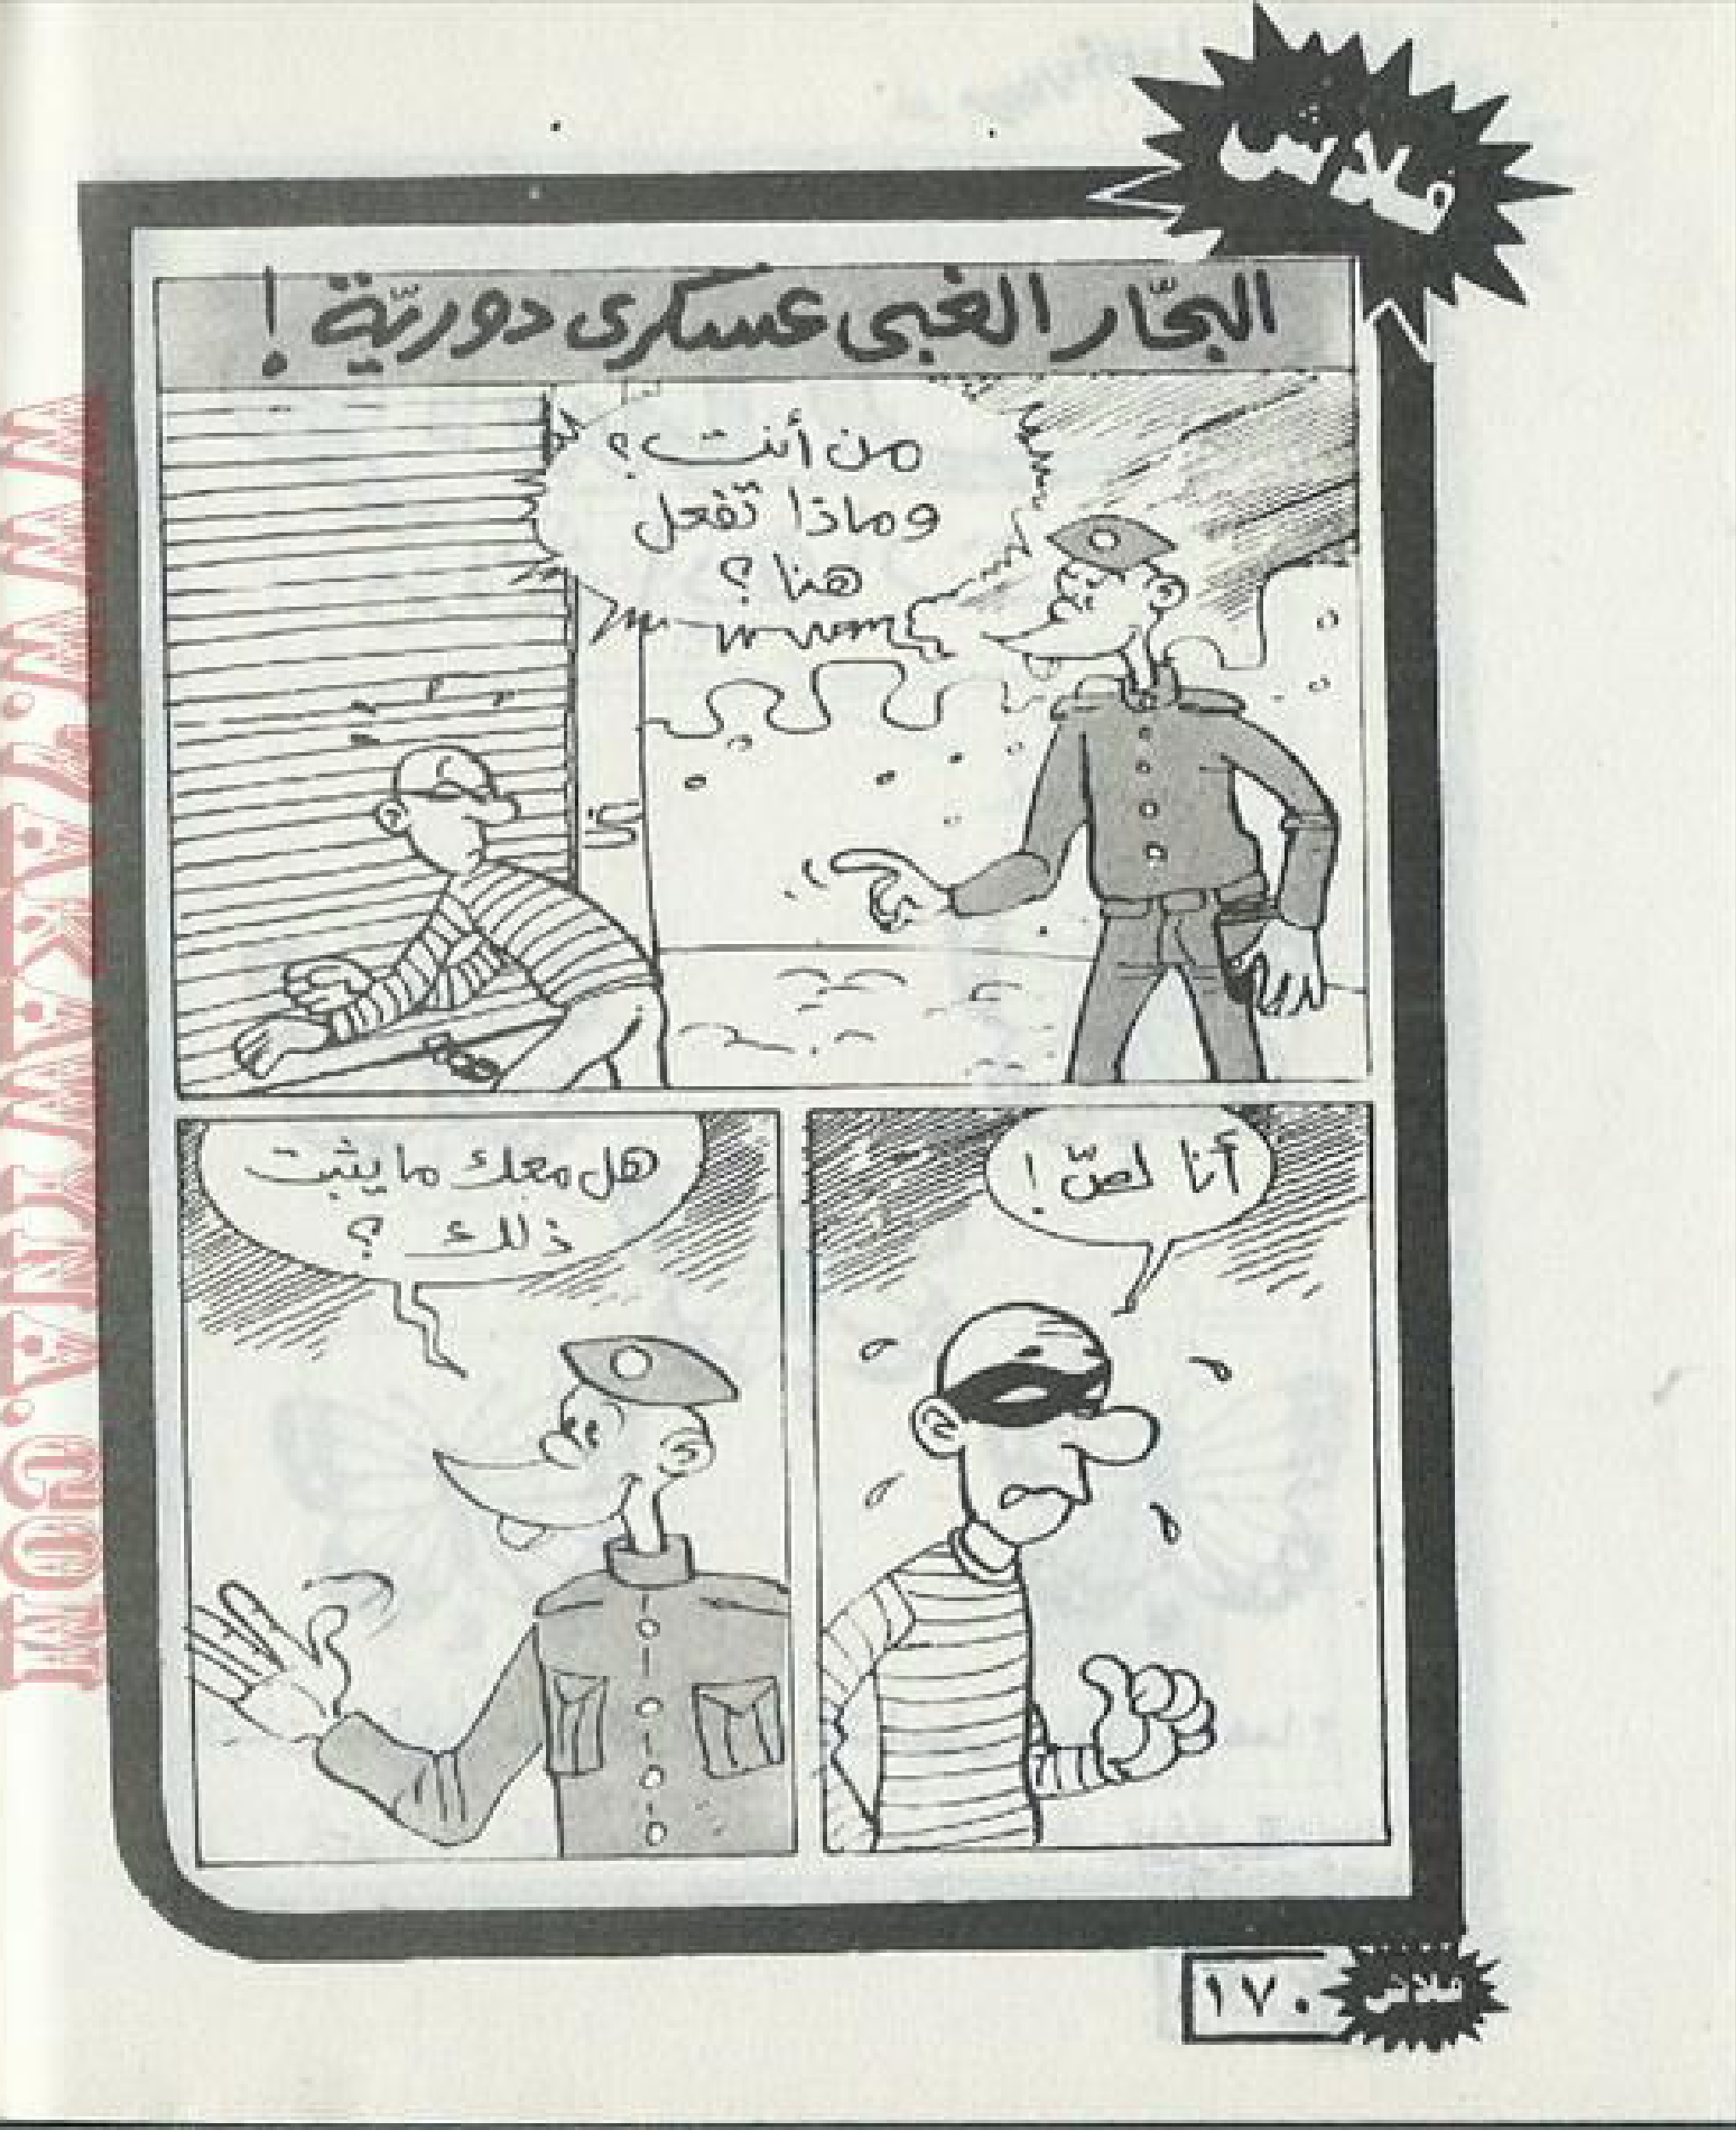 فلاش
البحّار الغبى عسكرى دوريّة !
من أنت ؟
وماذا تفعل
هنا ؟
أنا لصّ !
هل معك ما يثبت
ذلك ؟
١٧٠
فلاش